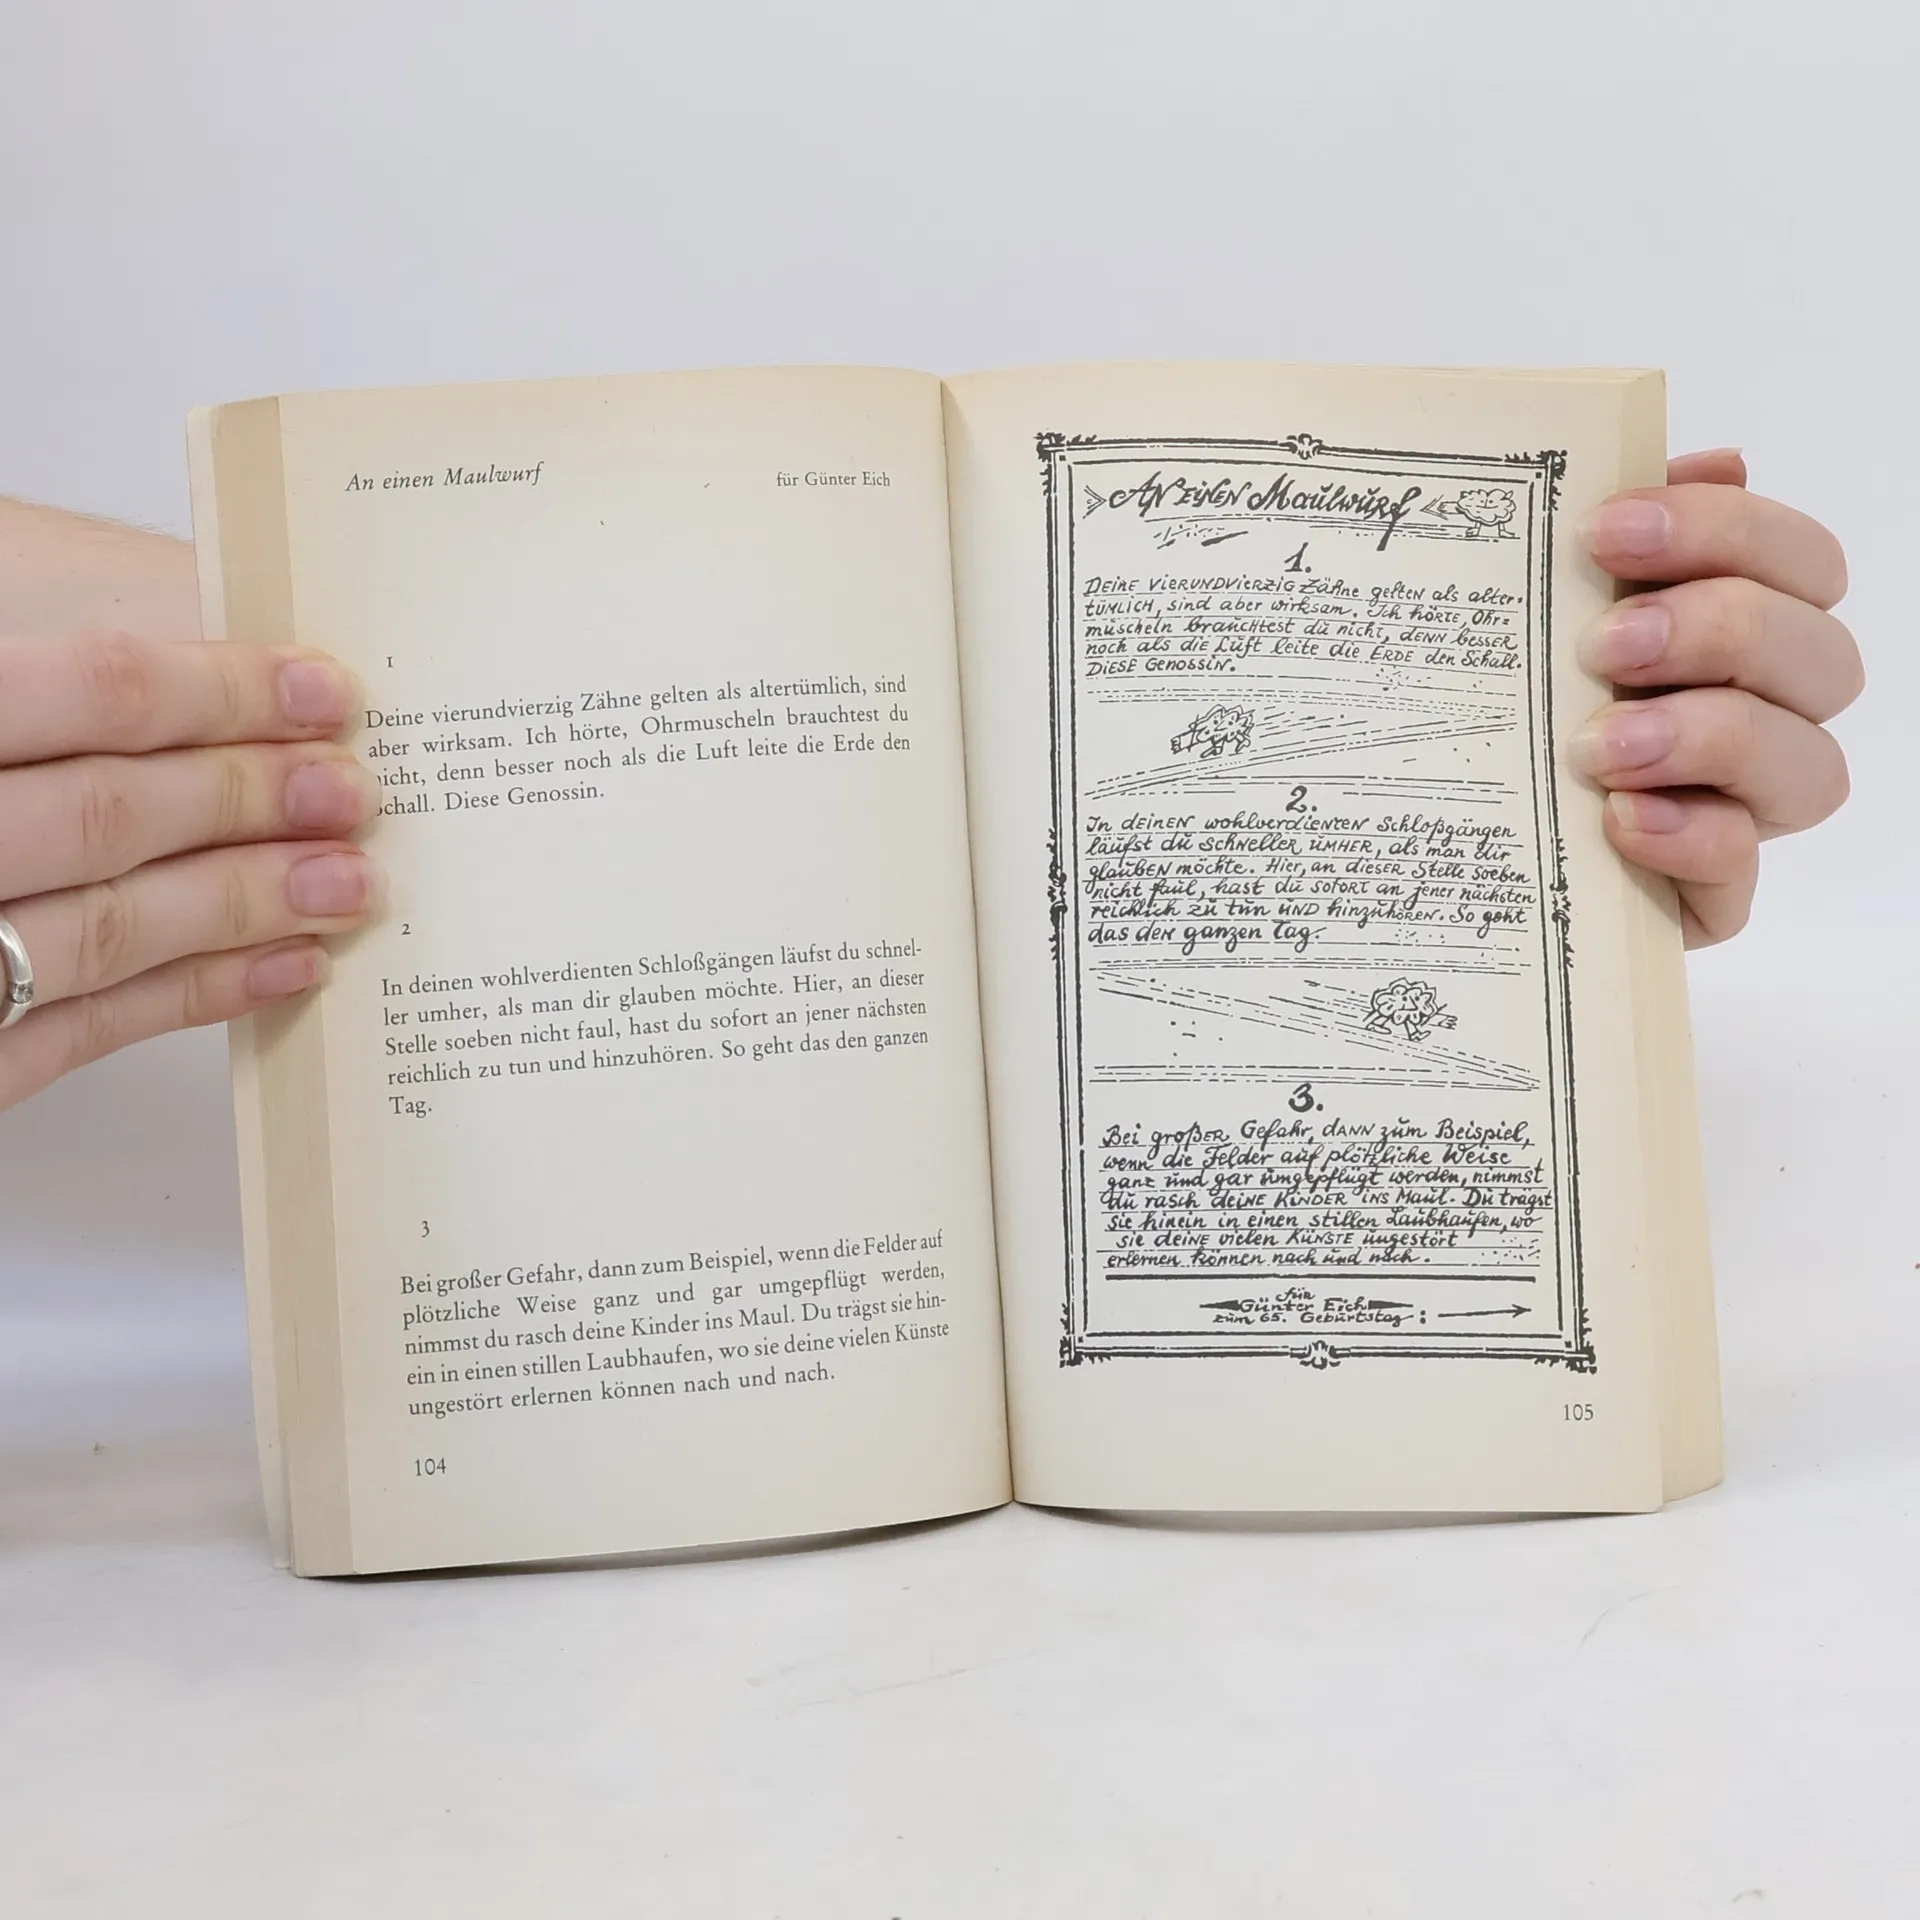 An einen Maulwurf
für Günter Eich
1
Deine vierundvierzig Zähne gelten als altertümlich, sind
aber wirksam. Ich hörte, Ohrmuscheln brauchtest du
nicht, denn besser noch als die Luft leite die Erde den
Schall. Diese Genossin.
2
In deinen wohlverdienten Schloßgängen läufst du schnel-
ler umher, als man dir glauben möchte. Hier, an dieser
Stelle soeben nicht faul, hast du sofort an jener nächsten
reichlich zu tun und hinzuhören. So geht das den ganzen
Tag.
3
Bei großer Gefahr, dann zum Beispiel, wenn die Felder auf
plötzliche Weise ganz und gar umgepflügt werden,
nimmst du rasch deine Kinder ins Maul. Du trägst sie hin-
ein in einen stillen Laubhaufen, wo sie deine vielen Künste
ungestört erlernen können nach und nach.
104
AN EINEN Maulwurf
1.
DEINE VIERUNDVIERZIG Zähne gelten als alter-
TÜMLICH, sind aber wirksam. Ich hörte, Ohr=
muscheln brauchtest du nicht, DENN besser
noch als die Luft leite die ERDE den Schall.
DIESE GENOSSIN.
2.
In DEINEN wohlverdienten Schloßgängen
läufst du SCHNELLER UMHER, als man dir
glauben möchte. Hier, an dieser Stelle soeben
nicht faul, hast du sofort an jener nächsten
reichlich zu tun UND hinzuhören. So geht
das den ganzen Tag.
3.
Bei großer Gefahr, DANN zum Beispiel,
wenn die Felder auf plötzliche Weise
ganz und gar umgepflügt werden, nimmst
du rasch deine KINDER ins Maul. Du trägst
sie hinein in einen stillen Laubhaufen, wo
sie deine vielen KÜNSTE ungestört
erlernen können nach und nach.
für
Günter Eich
zum 65. Geburtstag:
105